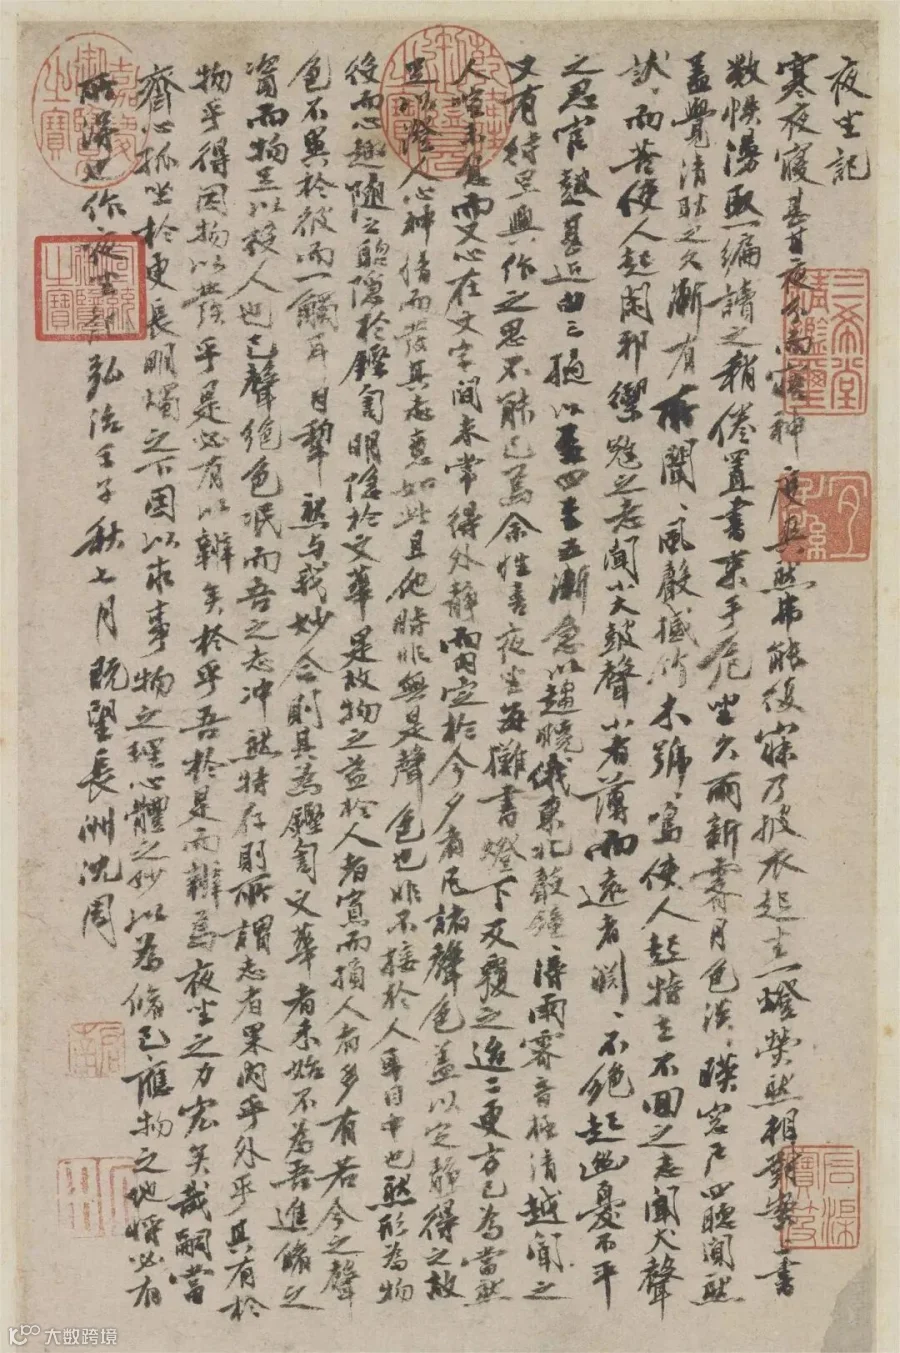 夜坐記
寒夜寢甚甘夜分而寤神度爽然弗能復寐乃披衣起坐一燈熒然相對案上書
數帙漫取一編讀之稍倦置書束手危坐久雨新霽月色淡、暎窗戶四聽闃然
蓋覺清耿之久漸有所聞、風聲撼竹木號、鳴使人起特立不回之志聞犬聲
狀、而苦使人起閑邪禦寇之志聞小大鼓聲小者薄而遠者淵、不絕起幽憂不平
之思官鼓甚近由三撾以至四至五漸急以趨曉俄東北聲鐘、得雨霽音極清越聞之
又有待旦興作之思不能已焉余性喜夜坐每攤書燈下反覆之迨二更方已為當然
人喧未息而又心在文字間未常得外靜而內定於今夕者凡諸聲色蓋以定靜得之故
足以澄人心神情而發其志意如此且他時非無是聲色也非不接於人耳目中也然形為物
役而心趣隨之聰隱於鏗訇明隱於文華是故物之益於人者寡而損人者多有若今之聲
色不異於彼而一觸耳目犁然與我妙合則其為鏗訇文華者未始不為吾進脩之
資而物足以役人也已聲絕色泯而吾之志沖然特存則所謂志者果內乎外乎其有於
物乎得因物以發乎是必有以辨矣於乎吾於是而辨焉夜坐之力宏矣哉嗣當
齋心孤坐於更長明燭之下因以求事物之理心體之妙以為脩己應物之地將必有
所得也作夜坐記弘治壬子秋七月既望長洲沈周
三希堂精鑑璽
宜子孫
石渠寶笈
嘉慶御覽之寶
宣統御覽之寶
大数跨境